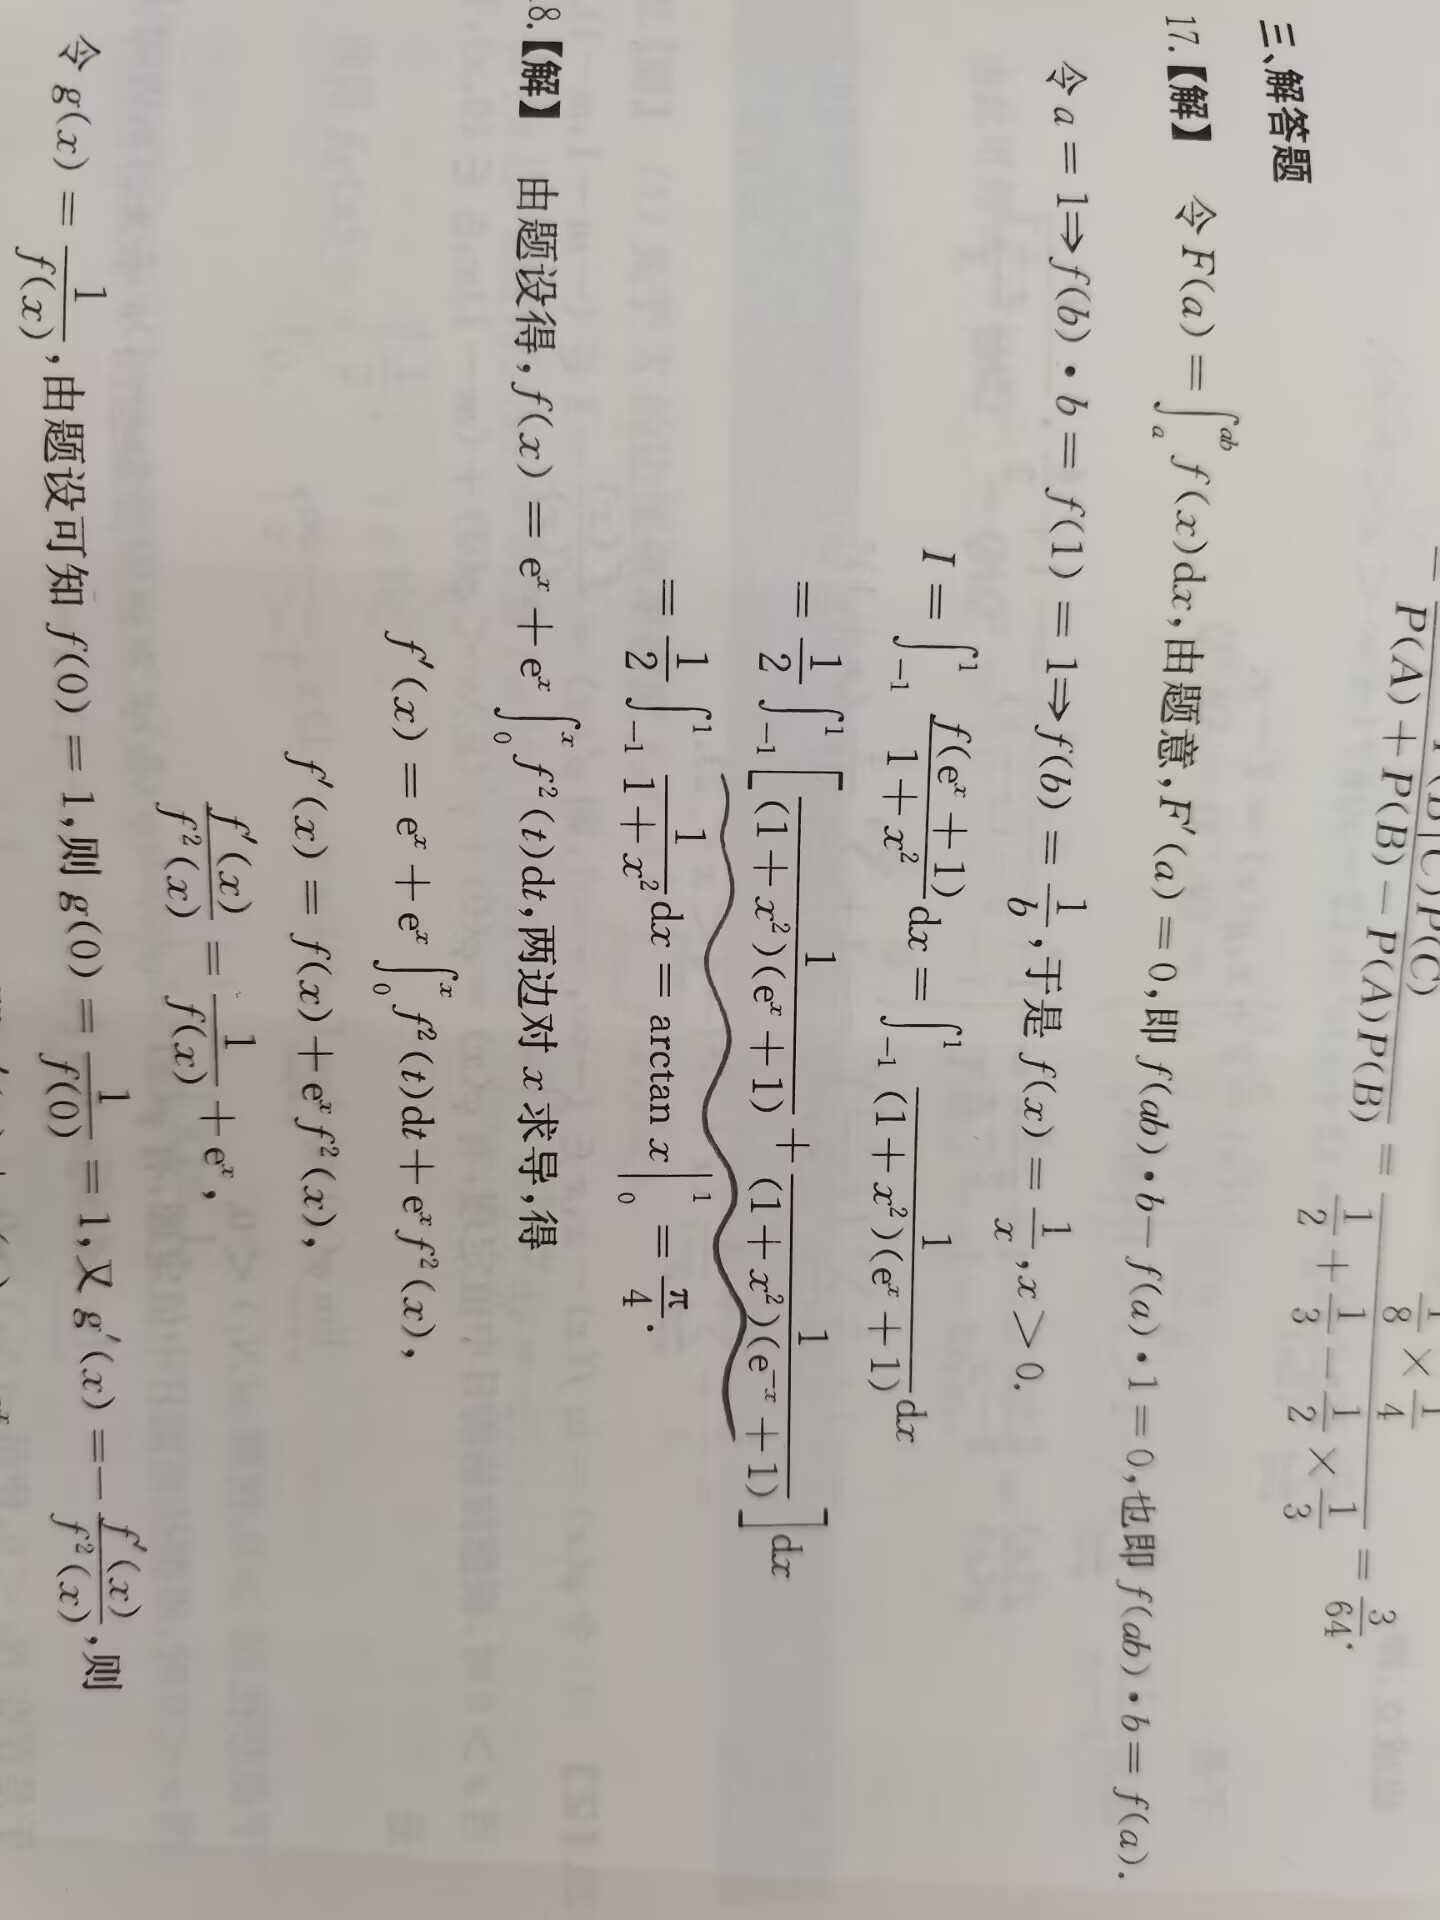 P(A)+P(B)-P(A)P(B) = 1/2 + 1/3 - 1/2 × 1/3 = 3/64.
三、解答题
17.【解】 令 F(a) = ∫_a^{ab} f(x)dx,由题意,F′(a)=0,即 f(ab)·b-f(a)·1=0,也即 f(ab)·b=f(a).
令 a = 1⇒f(b)·b = f(1) = 1⇒f(b) = 1/b,于是 f(x) = 1/x,x>0.
I = ∫_{-1}^{1} f(e^x+1)/(1+x²) dx = ∫_{-1}^{1} 1/((1+x²)(e^x+1)) dx
= 1/2 ∫_{-1}^{1} [1/((1+x²)(e^x+1)) + 1/((1+x²)(e^{-x}+1))] dx
= 1/2 ∫_{-1}^{1} 1/(1+x²) dx = arctan x |_0^1 = π/4.
8.【解】 由题设得,f(x) = e^x + e^x ∫_0^x f²(t)dt,两边对 x 求导,得
f′(x) = e^x + e^x ∫_0^x f²(t)dt + e^x f²(x),
f′(x) = f(x) + e^x f²(x),
f′(x)/f²(x) = 1/f(x) + e^x,
令 g(x) = 1/f(x),由题设可知 f(0) = 1,则 g(0) = 1/f(0) = 1,又 g′(x) = - f′(x)/f²(x),则